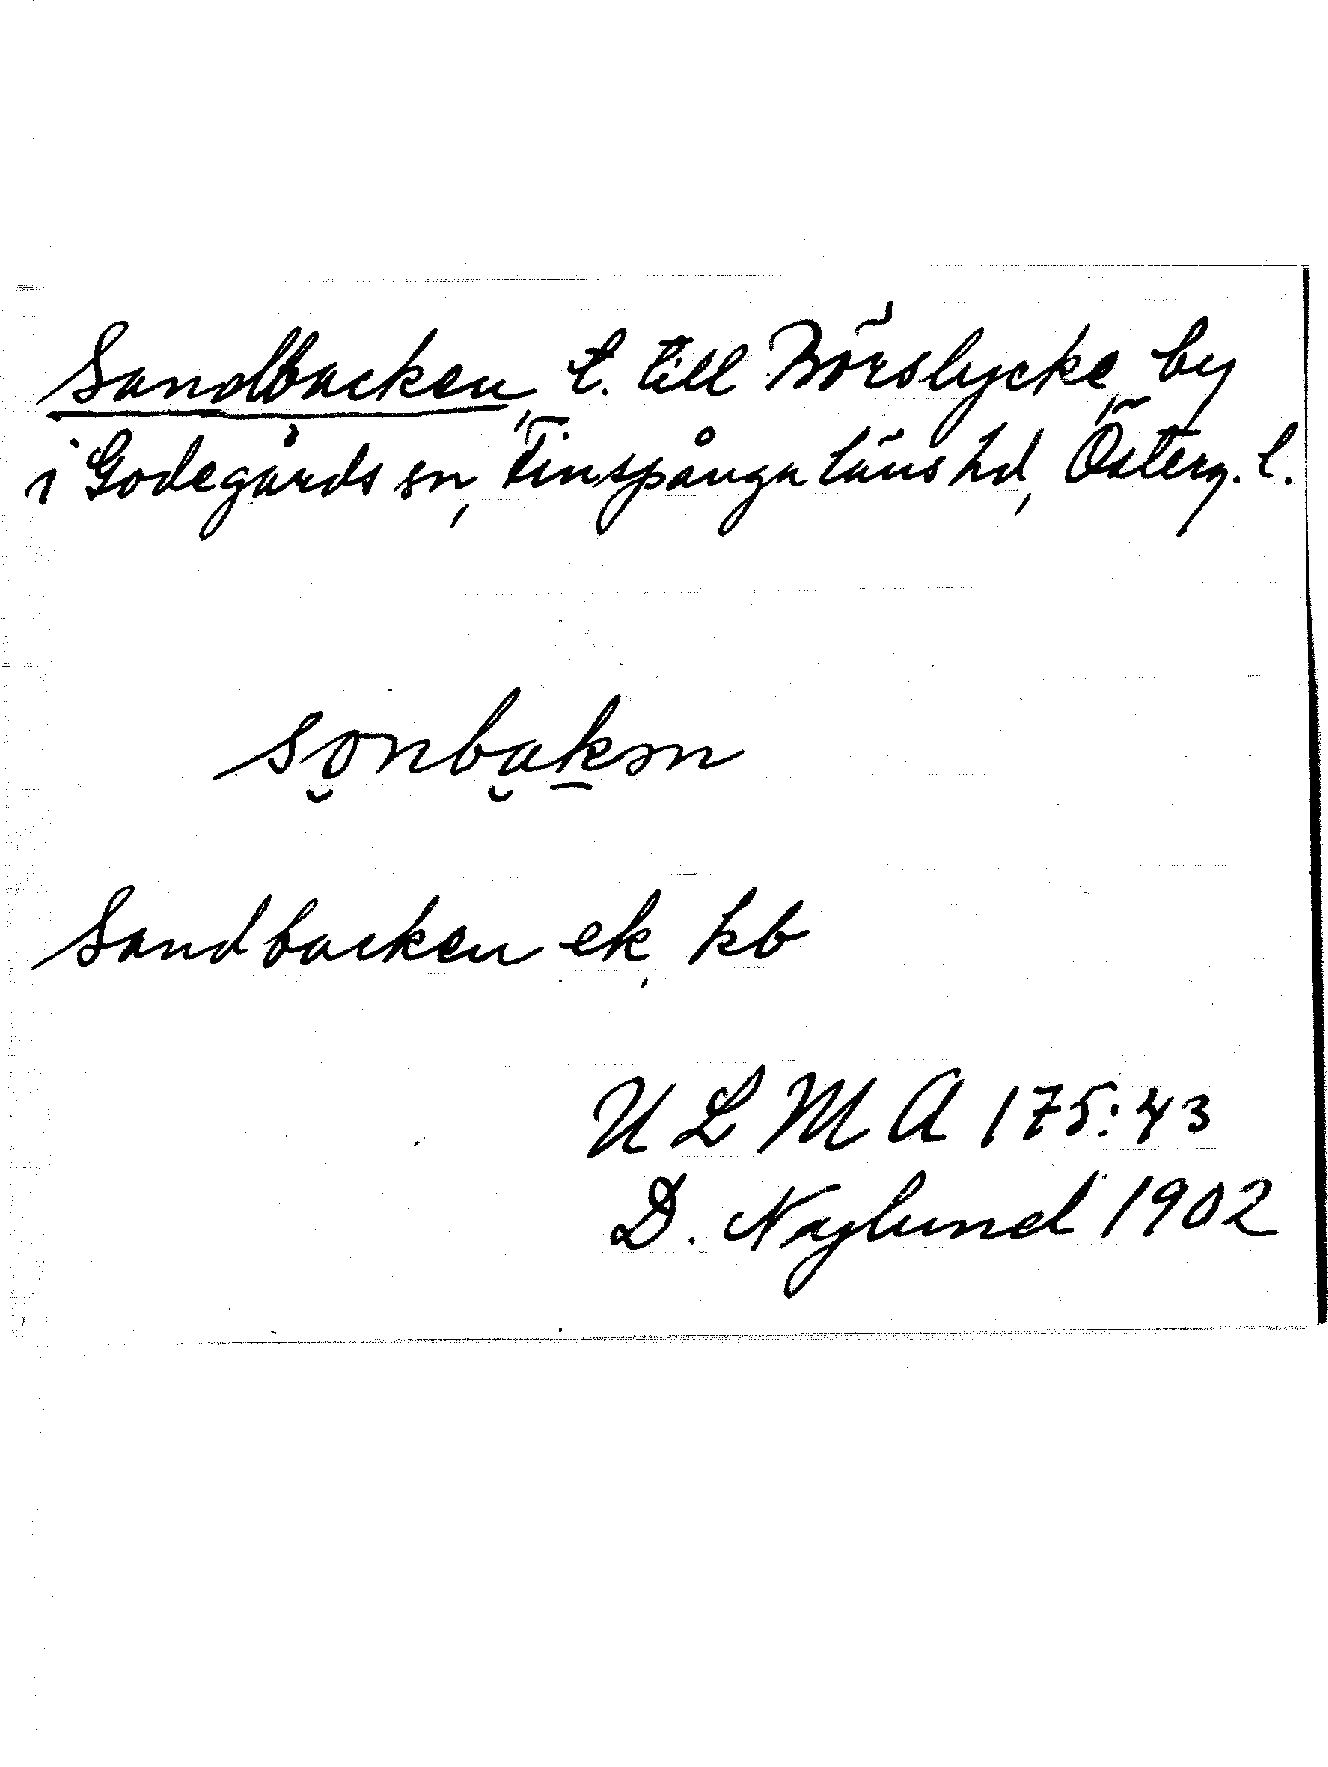 Sandbacken, t. till Börslycke by
i Godegårds sn, Finspånga läns hd, Österg. l.
sonbakɘn
Sandbacken ek, kb
ULMA 175:43
D. Naglund 1902